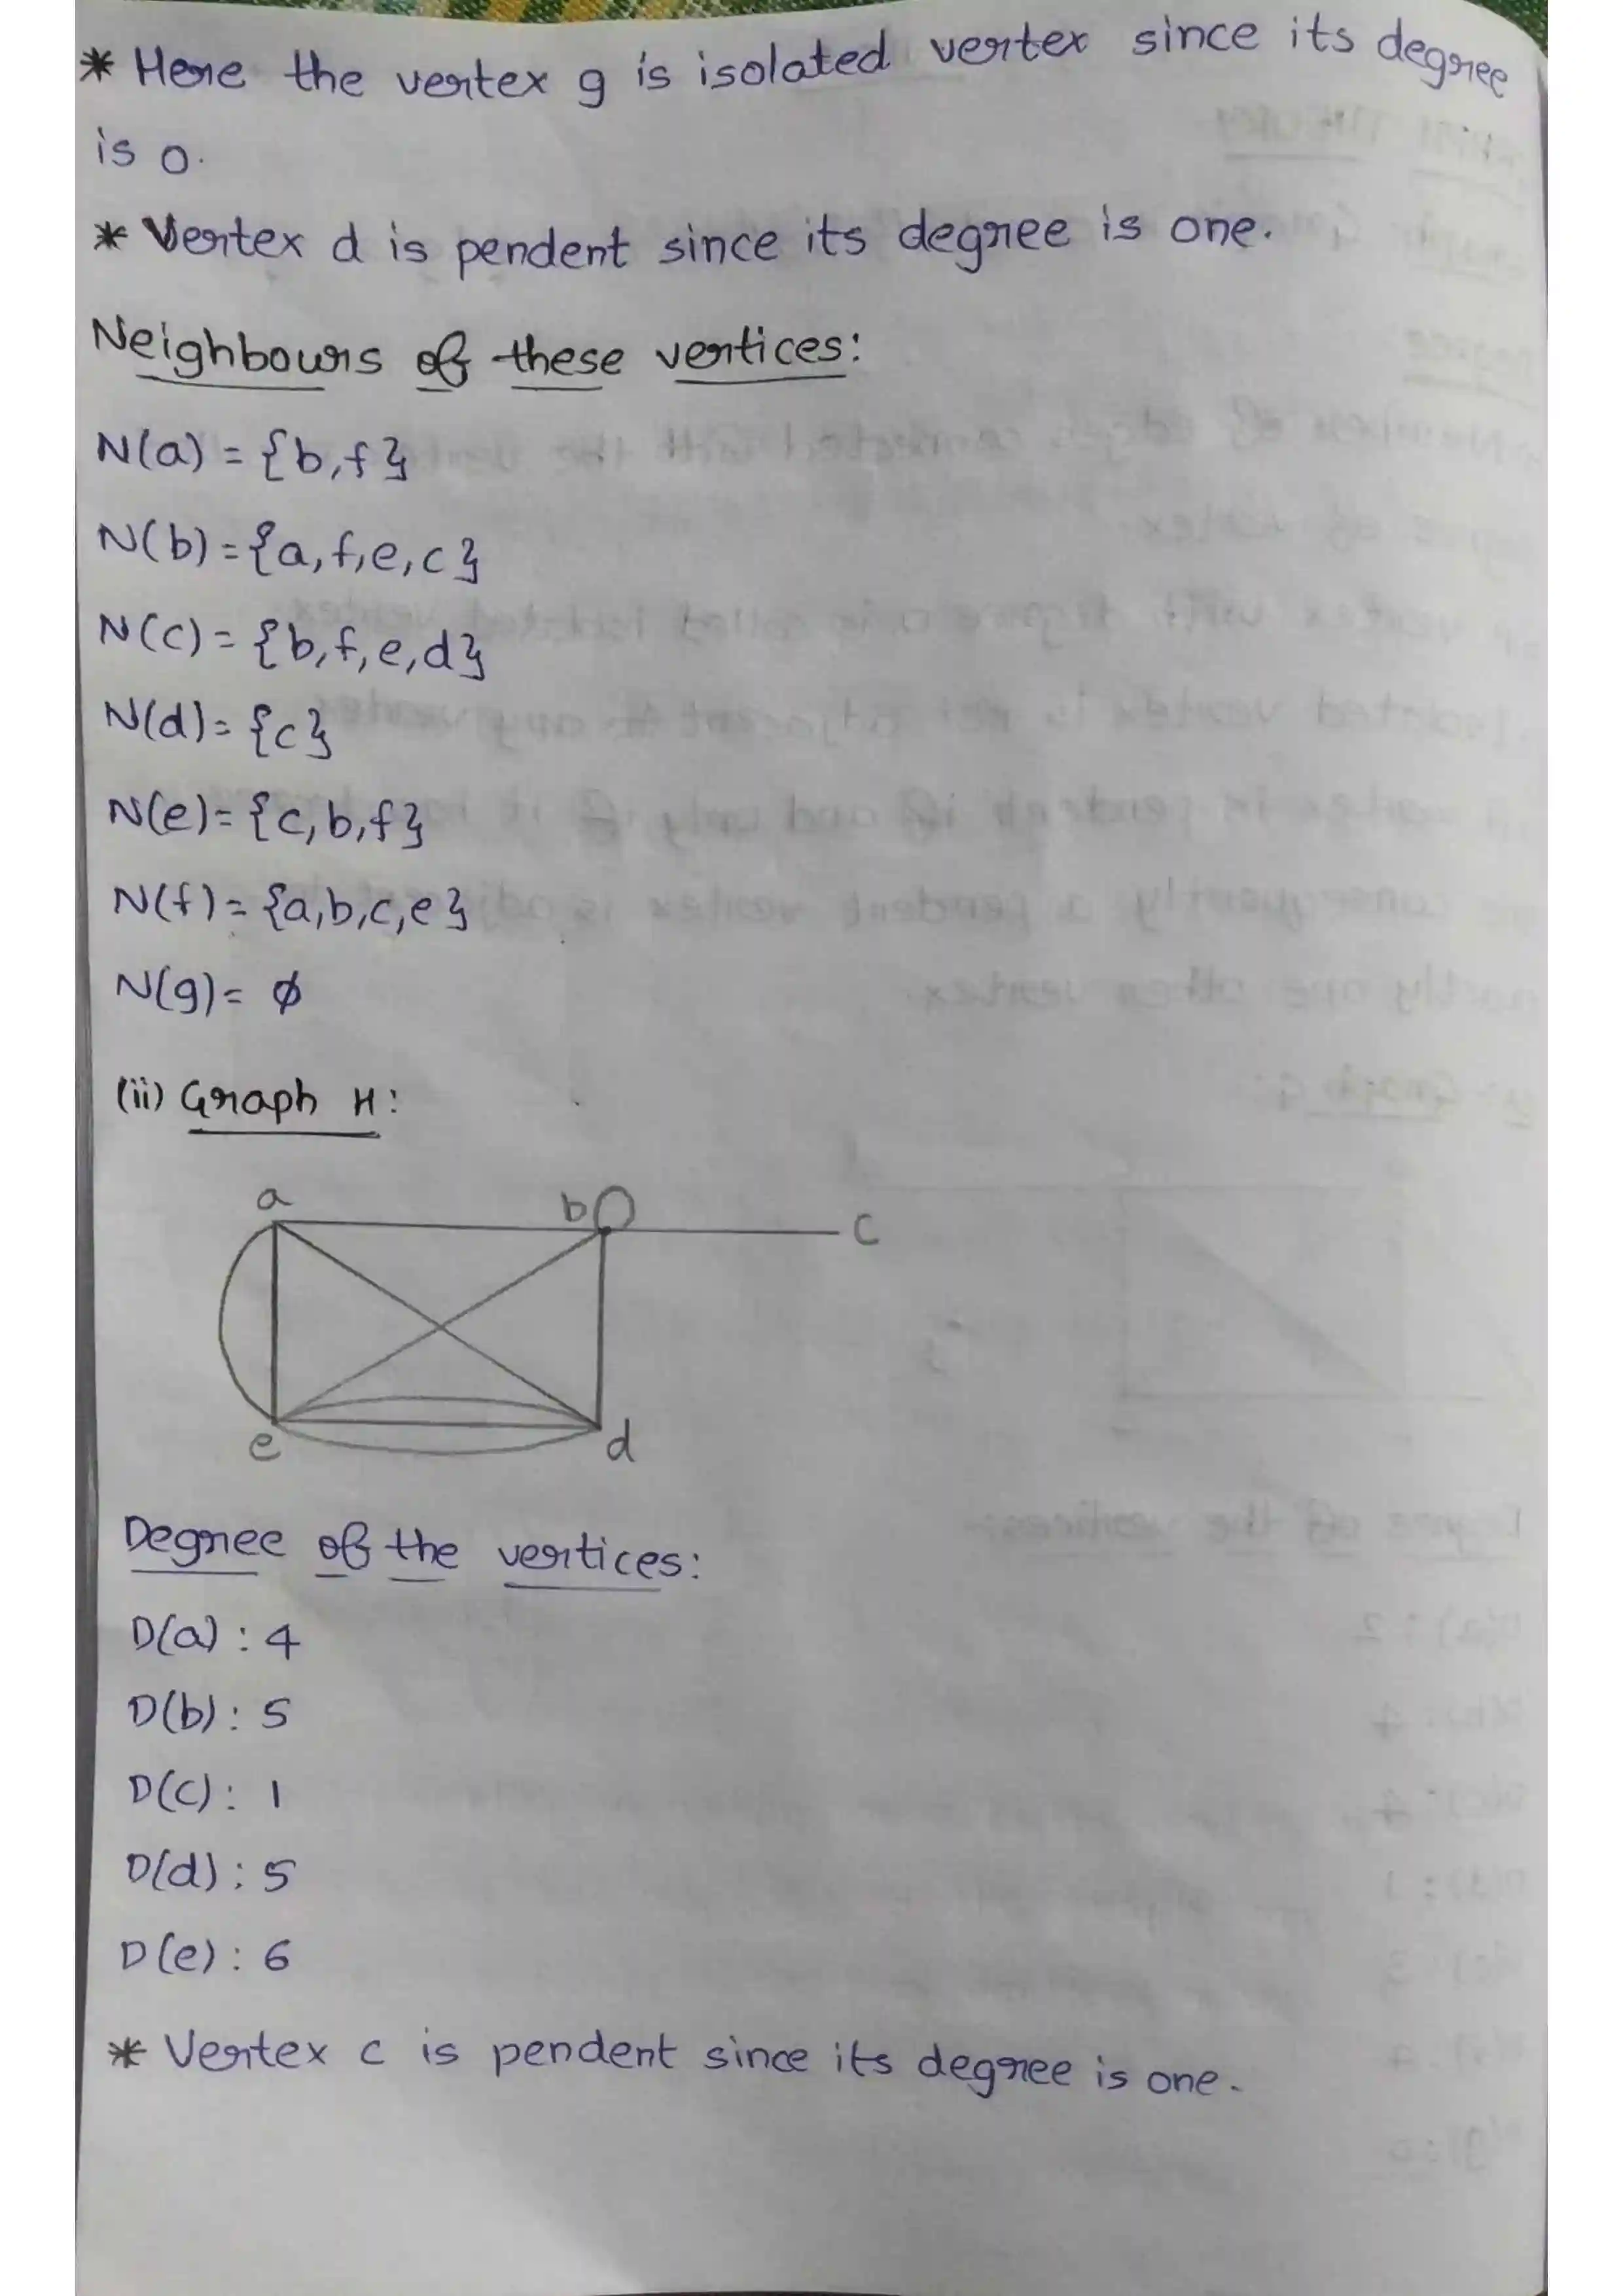 * Here the vertex g is isolated vertex since its degree
is 0.
* Vertex d is pendent since its degree is one.
Neighbours of these vertices:
N(a) = {b,f}
N(b) = {a,f,e,c}
N(c) = {b,f,e,d}
N(d) = {c}
N(e) = {c,b,f}
N(f) = {a,b,c,e}
N(g) = ϕ
(ii) Graph H:
a
b
c
e
d
Degree of the vertices:
D(a) : 4
D(b) : 5
D(c) : 1
D(d) : 5
D(e) : 6
* Vertex c is pendent since its degree is one.